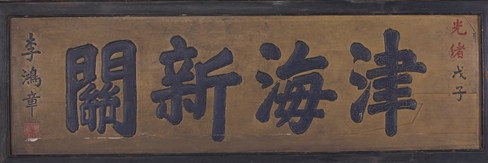 光緒戊子
津海新關
李鴻章